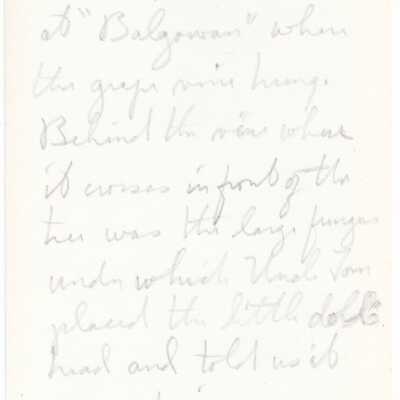 at "Balgowan" where
the grape vine hangs.
Behind the vine where
it crosses in front of the
tree was the large fungus
under which Uncle Tom
placed the little dolls
head and told us it